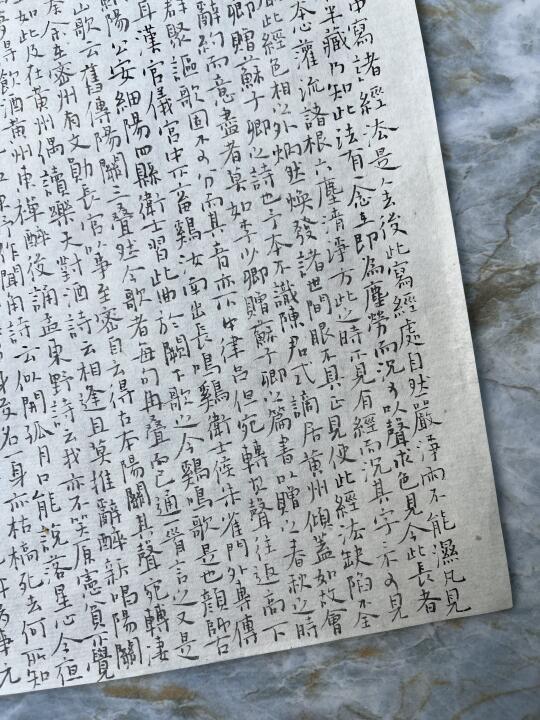 中寫諸經法是人去後此寫經處自然嚴淨雨不能濕凡見
半藏乃知此法有一念在即為塵勞而況可以聲求色見今此長者
念灌流諸根六塵清淨方此之時不見有經而況其字字不可見
此經色相之外炳然煥發諸世間眼不具正見使此經法缺陷不全
卿贈蘇子卿之詩也予本不識陳君式謫居黃州傾蓋如故會
辭約而意盡者莫如李少卿贈蘇子卿之篇書以贈之春秋之時
群聚謳歌固不可分而其音亦不中律呂但宛轉其聲往返高下
耳漢官儀宮中不畜雞汝南出長鳴雞衛士候朱雀門外專傳
陽公安細陽四縣衛士習此曲於闕下歌之今雞鳴歌是也顏師古
歌云舊傳陽關三疊然今歌者每句再疊而已通一首言之又是
余在密州有文勛長官以事至密自云得古本陽關其聲宛轉淒
如此及在黃州偶讀樂天對酒詩云相逢且莫推辭醉新唱陽關
飲酒黃州東禪醉後誦孟東野詩云我亦不笑原憲貧不覺
作聞角詩云似開孤月口能說落星心今夜
名一身亦枯槁死去何所知
事元